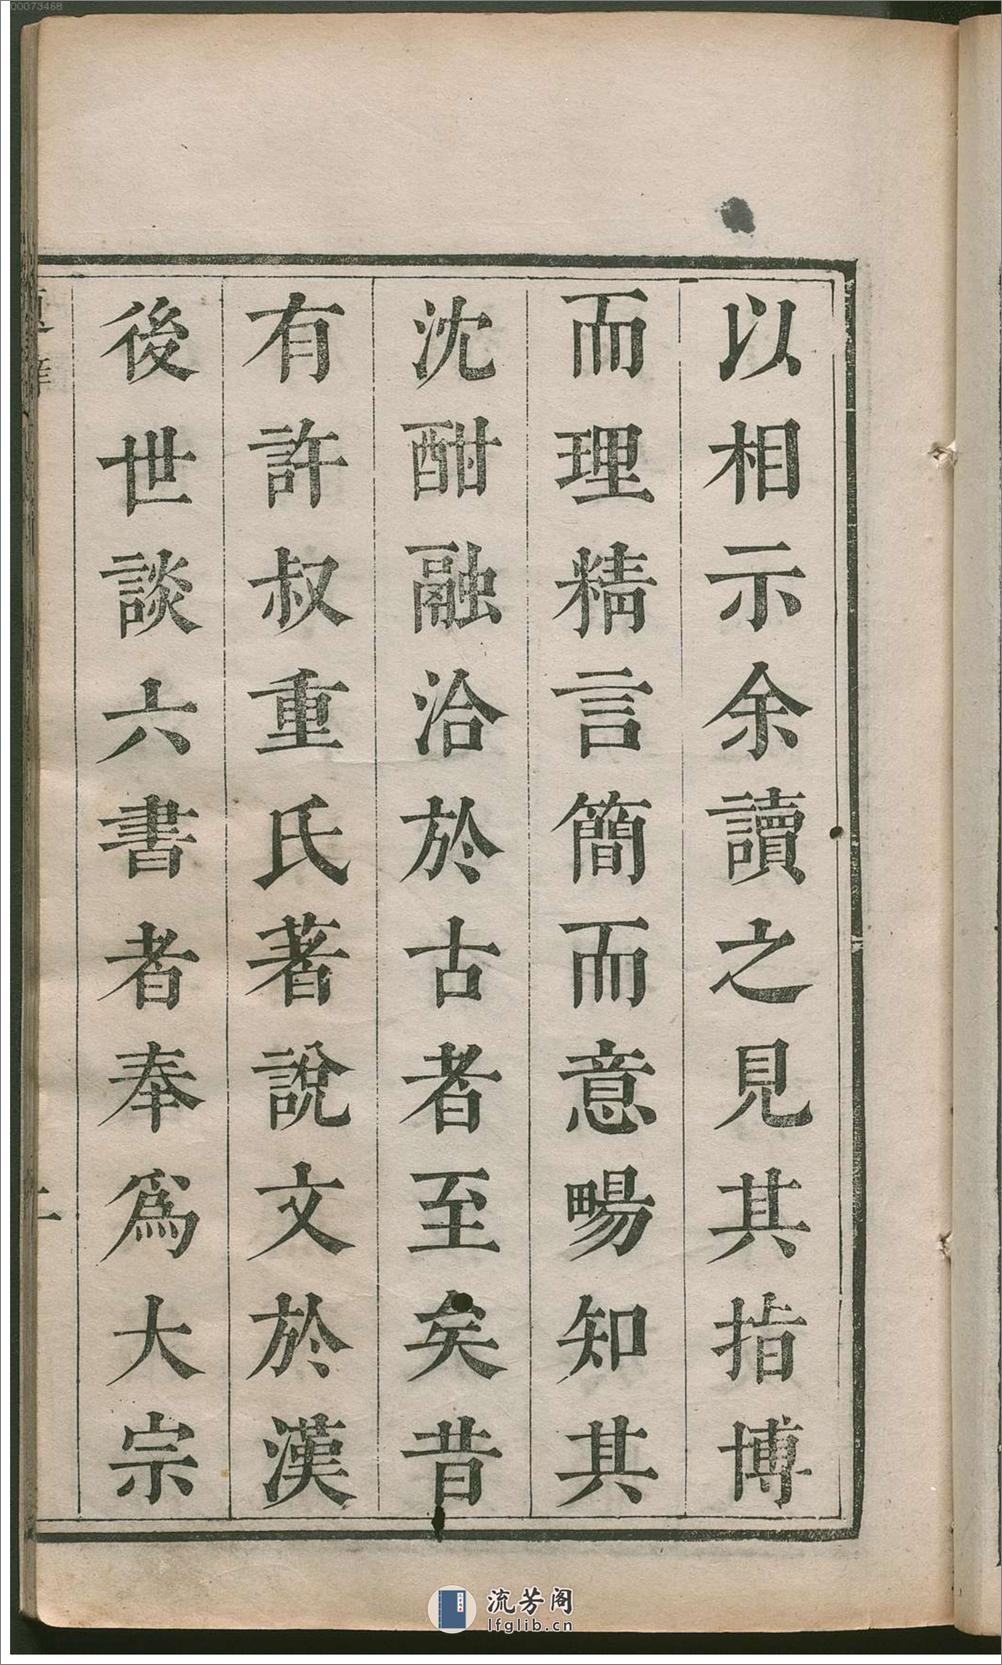 以相示余讀之見其指博
而理精言簡而意暢知其
沈酣融洽於古者至矣昔
有許叔重氏著說文於漢
後世談六書者奉爲大宗
00073468
流芳阁
lfglib.cn